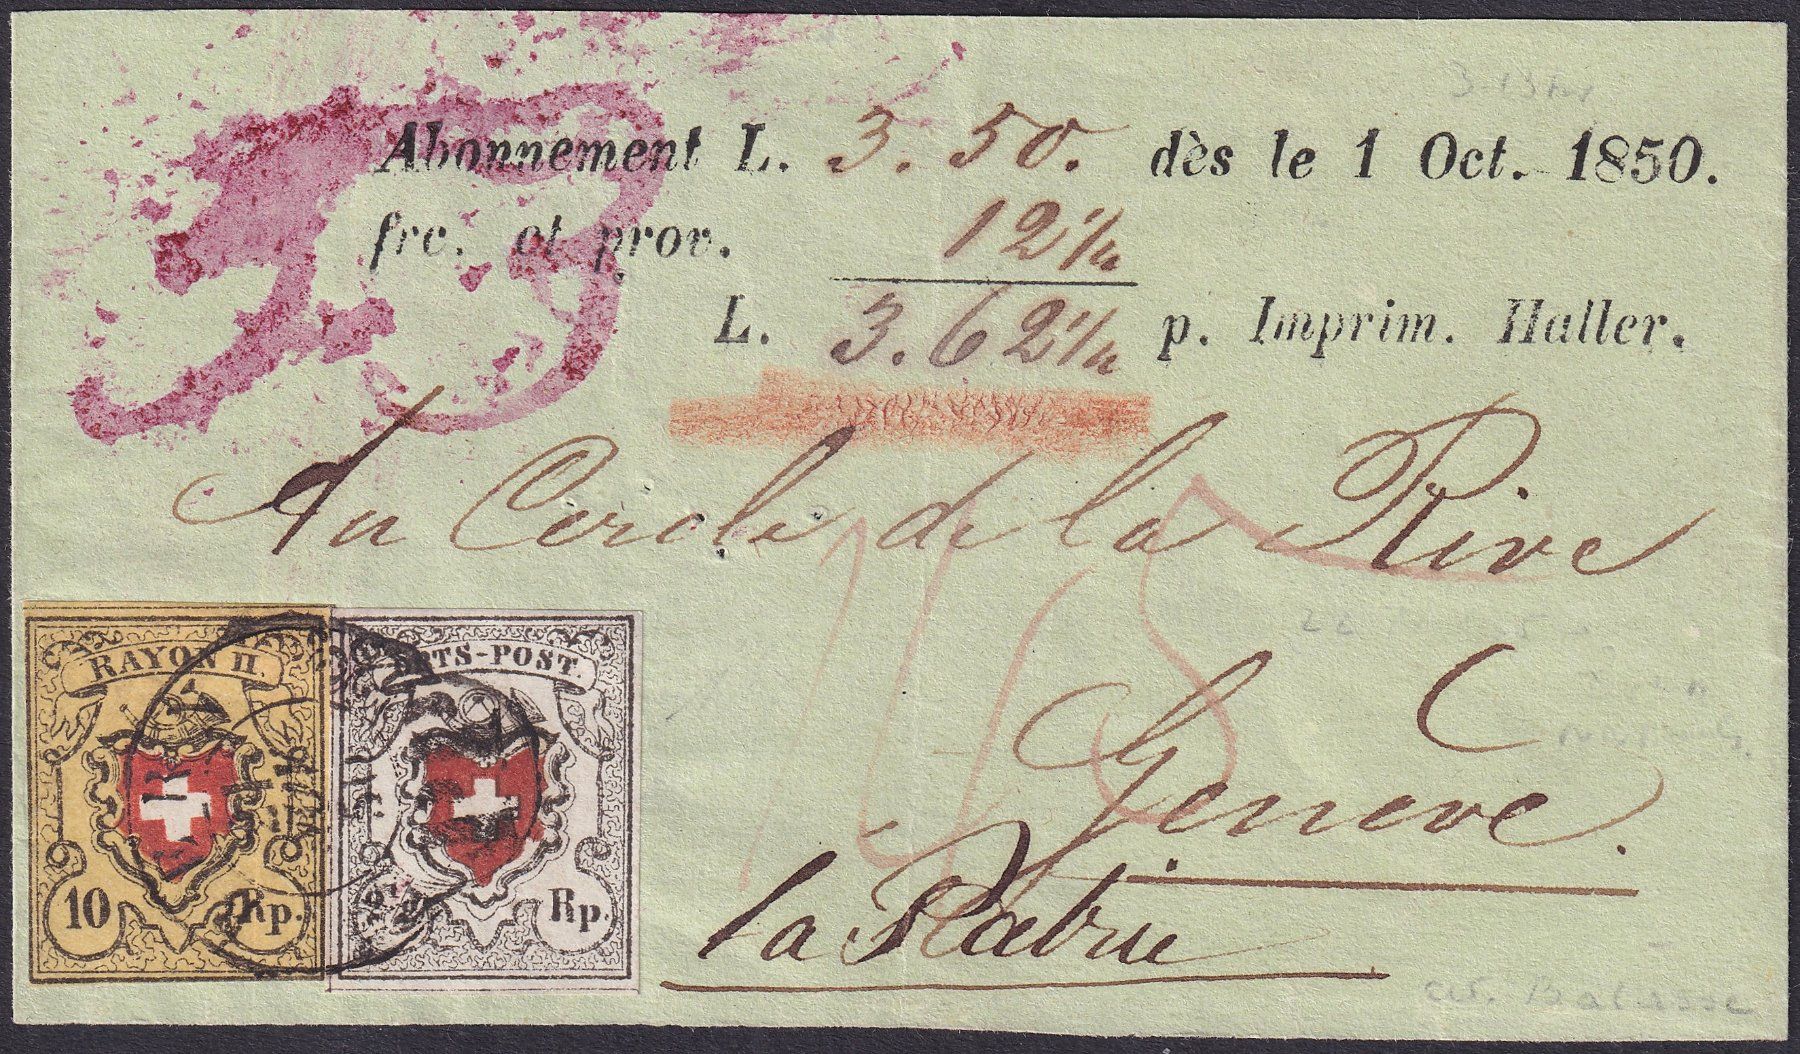 Abonnement L. 3. 50. dès le 1 Oct. 1850.
frc. et prov. 12 1/2
L. 3. 62 1/2 p. Imprim. Haller.
Au Cercle de la Rive
Genève
la Patrie
RAYON II.
10 Rp.
ORTS-POST.
Rp.